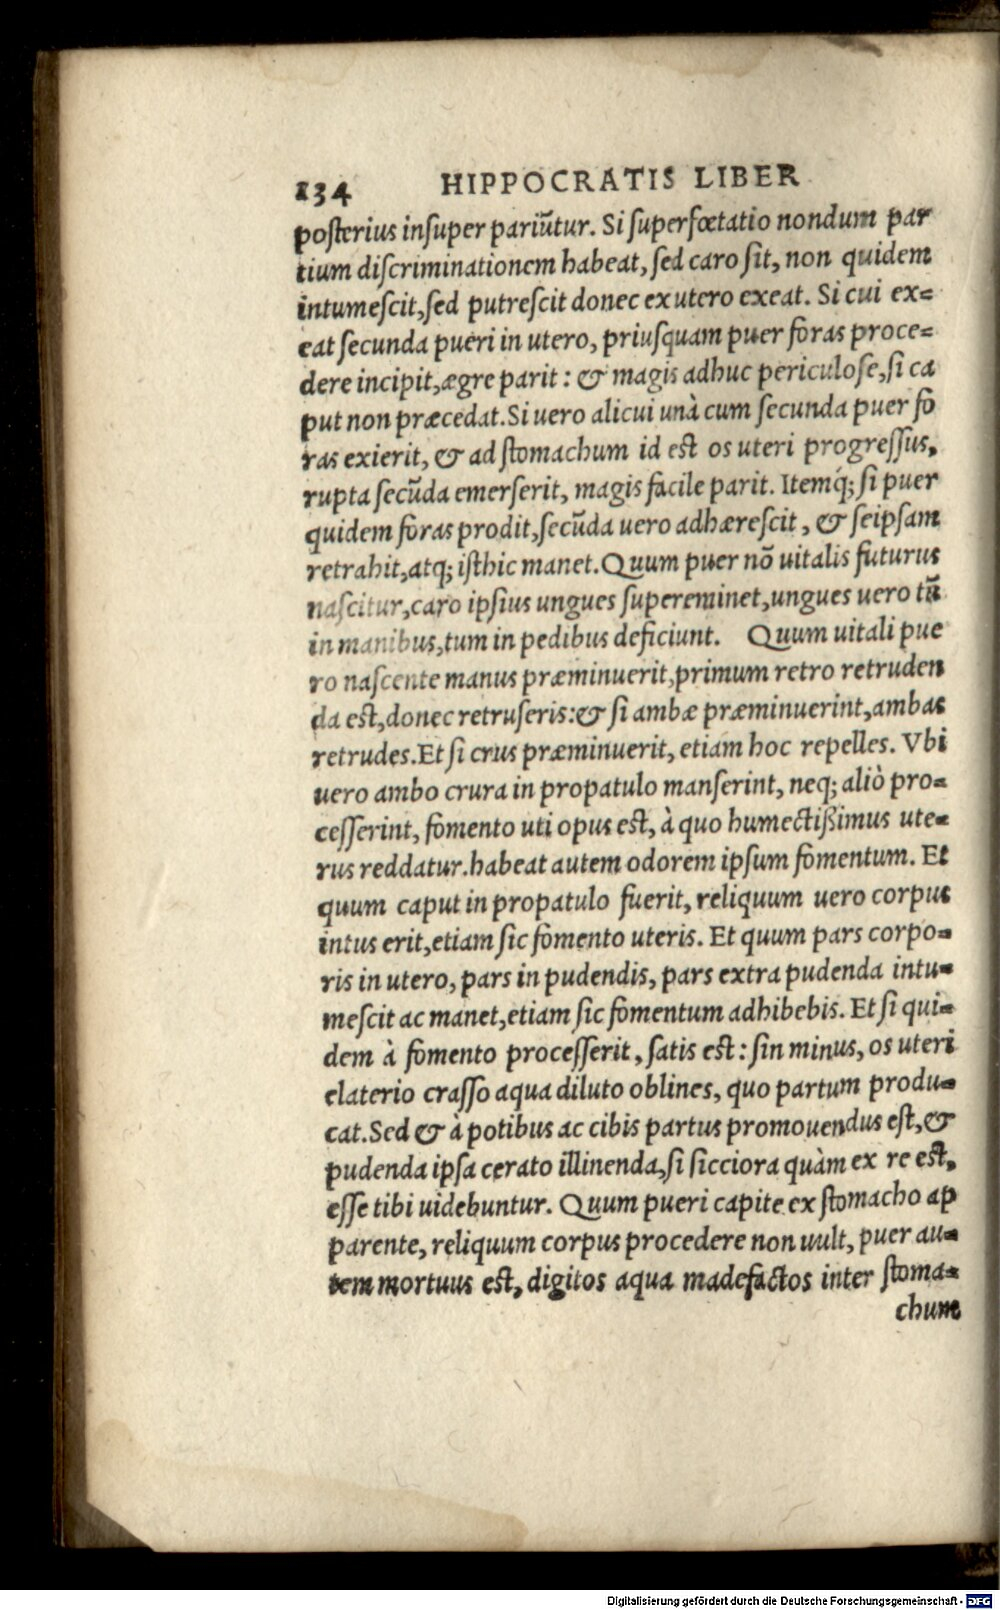 134 HIPPOCRATIS LIBER
posterius insuper pariũtur. Si superfœtatio nondum par
tium discriminationem habeat, sed caro sit, non quidem
intumescit, sed putrescit donec ex utero exeat. Si cui ex=
eat secunda pueri in utero, priusquam puer foras proce=
dere incipit, ægre parit: & magis adhuc periculose, si ca
put non præcedat. Si uero alicui unà cum secunda puer fo
ras exierit, & ad stomachum id est os uteri progressus,
rupta secũda emerserit, magis facile parit. Itemq́; si puer
quidem foras prodit, secũda uero adhærescit, & seipsam
retrahit, atq; isthic manet. Quum puer nõ uitalis futurus
nascitur, caro ipsius ungues supereminet, ungues uero tũ
in manibus, tum in pedibus deficiunt. Quum uitali pue
ro nascente manus præminuerit, primum retro retruden
da est, donec retruseris: & si ambæ præminuerint, ambas
retrudes. Et si crus præminuerit, etiam hoc repelles. Vbi
uero ambo crura in propatulo manserint, neq; aliò pro=
cesserint, fomento uti opus est, à quo humectißimus ute=
rus reddatur. habeat autem odorem ipsum fomentum. Et
quum caput in propatulo fuerit, reliquum uero corpus
intus erit, etiam sic fomento uteris. Et quum pars corpo=
ris in utero, pars in pudendis, pars extra pudenda intu=
mescit ac manet, etiam sic fomentum adhibebis. Et si qui=
dem à fomento processerit, satis est: sin minus, os uteri
elaterio crasso aqua diluto oblines, quo partum produ=
cat. Sed & à potibus ac cibis partus promouendus est, &
pudenda ipsa cerato illinenda, si sicciora quàm ex re est,
esse tibi uidebuntur. Quum pueri capite ex stomacho ap
parente, reliquum corpus procedere non uult, puer au=
tem mortuus est, digitos aqua madefactos inter stoma=
chum
Digitalisierung gefördert durch die Deutsche Forschungsgemeinschaft - DFG